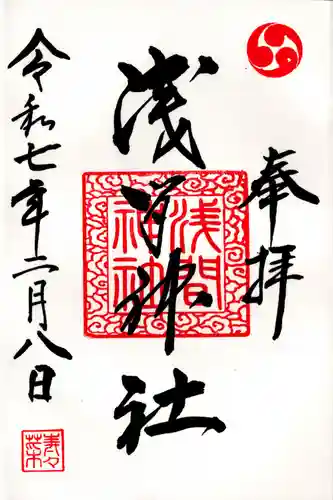 奉拝
浅間神社
浅間神社
令和七年二月八日